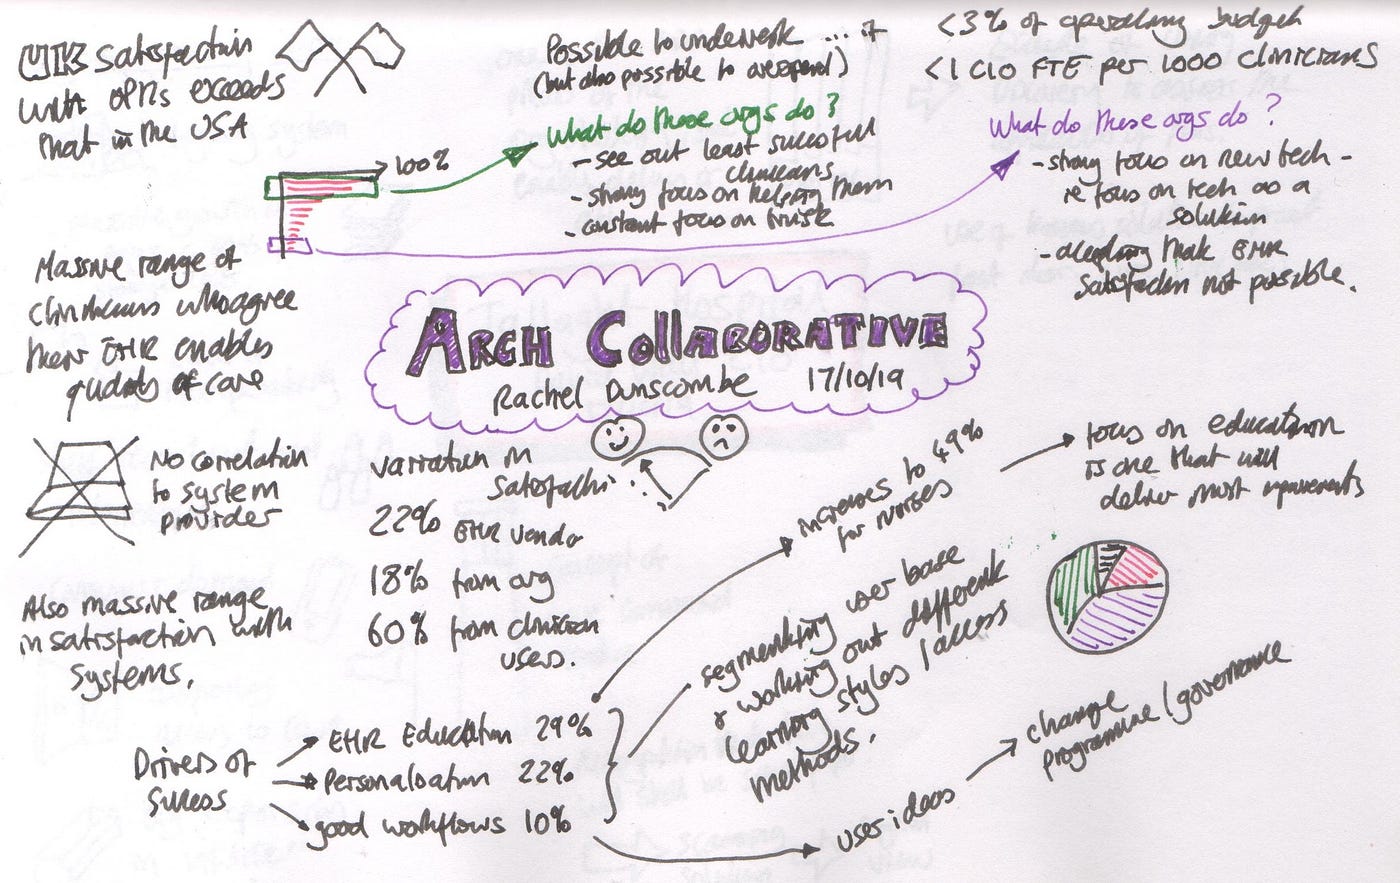 UK satisfaction
with EPRs exceeds
that in the USA
Possible to underwork ... if
(but also possible to overspend)
<3% of operating budget
<1 CIO FTE per 1000 clinicians
100%
What do these orgs do?
- see out least succesfull
clinicians
- strong focus on helping them
- constant focus on trust
What do these orgs do?
- strong focus on new tech -
ie focus on tech as a
solution
- accepting that EHR
satisfaction not possible.
Massive range of
clinicians who agree
their EHR enables
quality of care
ARCH COLLABORATIVE
Rachel Dunscombe 17/10/19
No correlation
to system
provider
Variation in
satisfaction
22% EHR vendor
18% from org
60% from clinician
users.
Also massive range
in satisfaction with
systems.
Drivers of
success
EHR Education 29%
Personalisation 22%
good workflows 10%
increases to 49%
for nurses
focus on education
is one that will
deliver most improvements
segmenting user base
& working out different
learning styles / access
methods.
user ideas
change
programme / governance